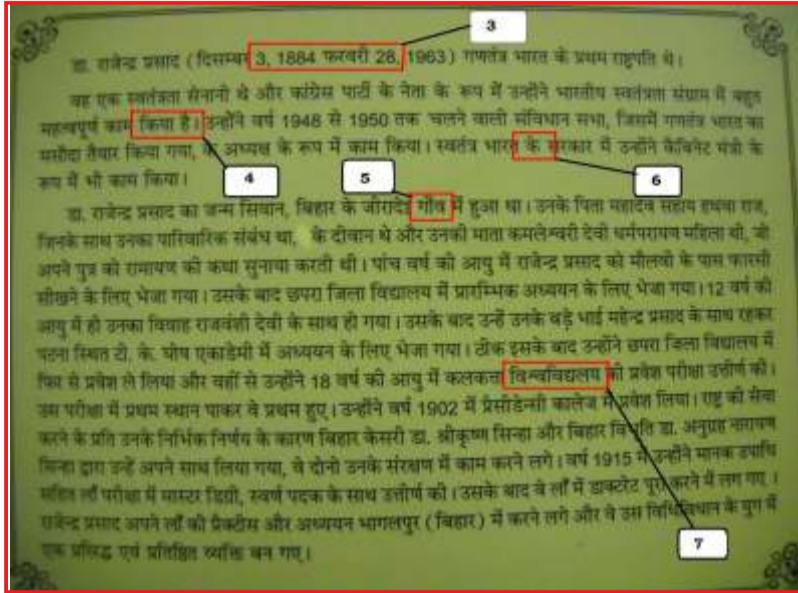 3
डा. राजेन्द्र प्रसाद (दिसम्बर 3, 1884 फरवरी 28, 1963) गणतंत्र भारत के प्रथम राष्ट्रपति थे।
वह एक स्वतंत्रता सेनानी थे और कांग्रेस पार्टी के नेता के रूप में उन्होंने भारतीय स्वतंत्रता संग्राम में बहुत
महत्वपूर्ण काम किया है। उन्होंने वर्ष 1948 से 1950 तक चलने वाली संविधान सभा, जिसमें गणतंत्र भारत का
मसौदा तैयार किया गया, के अध्यक्ष के रूप में काम किया। स्वतंत्र भारत के सरकार में उन्होंने कैबिनेट मंत्री के
रूप में भी काम किया।
4 5 6
डा. राजेन्द्र प्रसाद का जन्म सिवान, बिहार के जीरादेई गाँव में हुआ था। उनके पिता महादेव सहाय हथवा राज,
जिनके साथ उनका पारिवारिक संबंध था, के दीवान थे और उनकी माता कमलेश्वरी देवी धर्मपरायण महिला थी, जो
अपने पुत्र को रामायण की कथा सुनाया करती थी। पांच वर्ष की आयु में राजेन्द्र प्रसाद को मौलवी के पास फारसी
सीखने के लिए भेजा गया। उसके बाद छपरा जिला विद्यालय में प्रारम्भिक अध्ययन के लिए भेजा गया। 12 वर्ष की
आयु में ही उनका विवाह राजवंशी देवी के साथ हो गया। उसके बाद उन्हें उनके बड़े भाई महेन्द्र प्रसाद के साथ रहकर
पटना स्थित टी. के. घोष एकाडेमी में अध्ययन के लिए भेजा गया। ठीक इसके बाद उन्होंने छपरा जिला विद्यालय में
फिर से प्रवेश ले लिया और वहीं से उन्होंने 18 वर्ष की आयु में कलकत्ता विश्वविद्यलय की प्रवेश परीक्षा उत्तीर्ण की।
उस परीक्षा में प्रथम स्थान पाकर वे प्रथम हुए। उन्होंने वर्ष 1902 में प्रैसीडेन्सी कालेज में प्रवेश लिया। राष्ट्र की सेवा
करने के प्रति उनके निर्भिक निर्णय के कारण बिहार केसरी डा. श्रीकृष्ण सिन्हा और बिहार विभूति डा. अनुग्रह नारायण
सिन्हा द्वारा उन्हें अपने साथ लिया गया, वे दोनो उनके संरक्षण में काम करने लगे। वर्ष 1915 में उन्होंने मानक उपाधि
सहित लॉ परीक्षा में मास्टर डिग्री, स्वर्ण पदक के साथ उत्तीर्ण की। उसके बाद वे लॉ में डाक्टरेट पूरा करने में लग गए।
राजेन्द्र प्रसाद अपने लॉ की प्रैक्टीस और अध्ययन भागलपुर (बिहार) में करने लगे और वे उस विधिविधान के युग में
एक प्रसिद्ध एवं प्रतिष्ठित व्यक्ति बन गए।
7